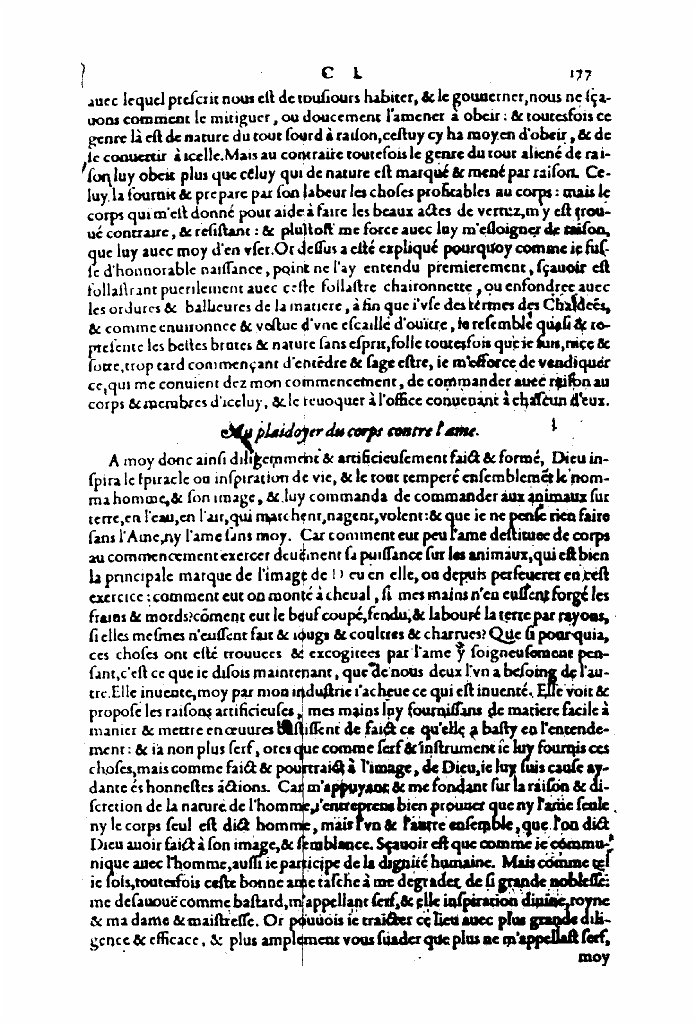 C I. 177
auec lequel prescrit nous est de tousiours habiter, & le gouuerner, nous ne sça-
uons comment le mitiguer, ou doucement l'amener à obeir: & toutesfois ce
genre là est de nature du tout sourd à raison, cestuy cy ha moyen d'obeir, & de
se conuertir à icelle. Mais au contraire toutefois le genre du tout aliené de rai-
son luy obeit plus que celuy qui de nature est marqué & mené par raison. Ce-
luy là fournit & prepare par son labeur les choses profitables au corps: mais le
corps qui m'est donné pour aide à faire les beaux actes de vertuz, m'y est trou-
ué contraire, & resistant: & plustost me force auec luy m'esloigner de raison,
que luy auec moy d'en vser. Or dessus a esté expliqué pourquoy comme ie fus-
se d'honnorable naissance, point ne l'ay entendu premierement, sçauoir est
follastrant puerilement auec ceste follastre chaironnette, ou enfondree auec
les ordures & balieures de la matiere, à fin que i'vse des termes des Chaldeës,
& comme enuironnee & vestue d'vne escaille d'ouitre, ie resemble quasi & re-
presente les bestes brutes & nature sans esprit, folle toutesfois que ie suis, nice &
sotte, trop tard commençant d'entẽdre & sage estre, ie m'efforce de vendiquer
ce, qui me conuient dez mon commencement, de commander auec raison au
corps & membres d'iceluy, & le reuoquer à l'office conuenant à chascun d'eux.
Au plaidoyer du corps contre l'ame.
A moy donc ainsi diligemment & artificieusement faict & formé, Dieu in-
spira le spiracle ou inspiration de vie, & le tout temperé ensemblemẽt le nom-
ma homme, & son image, & luy commanda de commander aux animaux sur
terre, en l'eau, en l'air, qui marchent, nagent, volent: & que ie ne pense rien faire
sans l'Ame, ny l'ame sans moy. Car comment eut peu l'ame destituee de corps
au commencement exercer deuëment sa puissance sur les animaux, qui est bien
la principale marque de l'image de Dieu en elle, ou depuis perseuerer en cest
exercice: comment eut on monté à cheual, si mes mains n'en eussent forgé les
frains & mords? cõment eut le beuf coupé, fendu, & labouré la terre par rayons,
si elles mesmes n'eussent fait & iougs & coultres & charrues? Que si pourquia,
ces choses ont esté trouuees & excogitees par l'ame y soigneusement pen-
sant, c'est ce que ie disois maintenant, que de nous deux l'vn a besoing de l'au-
tre. Elle inuente, moy par mon industrie i'acheue ce qui est inuenté. Elle voit &
propose les raisons artificieuses, mes mains luy fournissans de matiere facile à
manier & mettre en œuures bastissent de faict ce qu'elle a basty en l'entende-
ment: & ià non plus serf, ores que comme serf & instrument ie luy fournis ces
choses, mais comme faict & pourtraict à l'image, de Dieu, ie luy suis cause ay-
dante és honnestes actions. Car m'appuyant & me fondant sur la raison & di-
scretion de la nature de l'homme, i'entreprens bien prouuer que ny l'ame seule
ny le corps seul est dict homme, mais l'vn & l'autre ensemble, que l'on dict
Dieu auoir faict à son image, & semblance. Sçauoir est que comme ie cõmu-
nique auec l'homme, aussi ie participe de la dignité humaine. Mais cõme tel
ie sois, toutesfois ceste bonne ame tasche à me degrader de si grande noblesse:
me desauouë comme bastard, m'appellant serf, & elle inspiration diuine, royne
& ma dame & maistresse. Or pouuois ie traicter ce lieu auec plus grande dili-
gence & efficace, & plus amplement vous suader que plus ne m'appellast serf,
moy